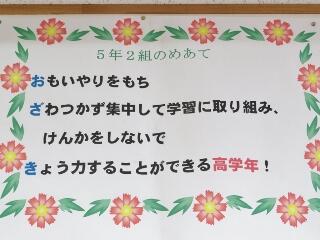 5年2組のめあて
おもいやりをもち
ざわつかず集中して学習に取り組み、
けんかをしないで
きょう力することができる高学年！